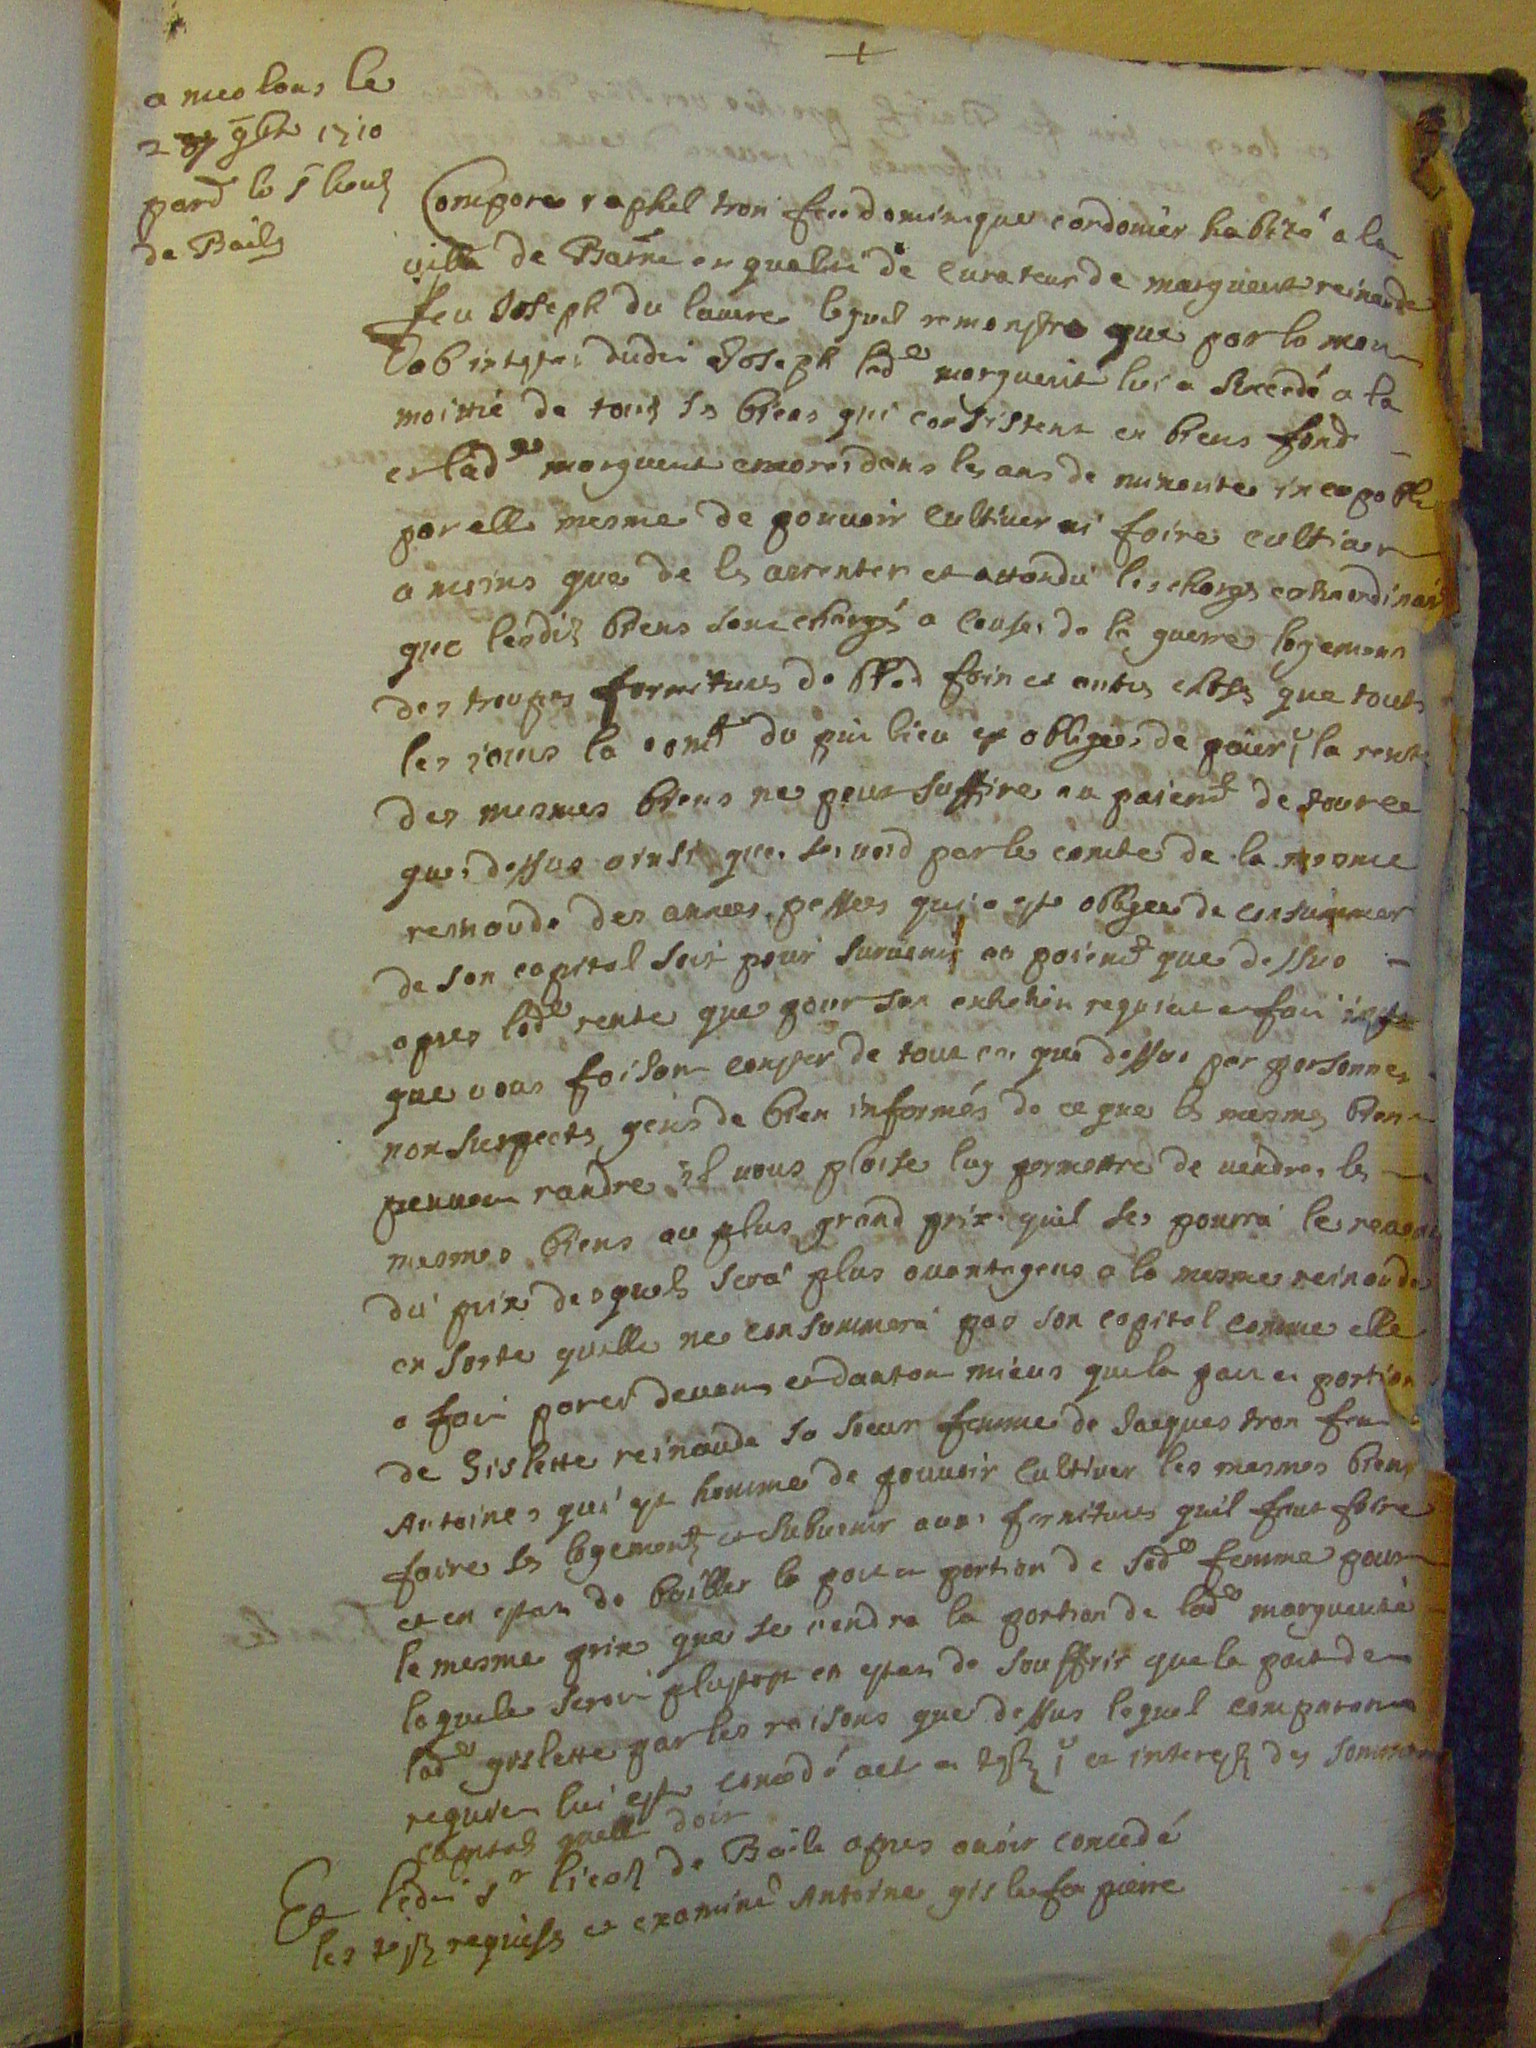 a meolans le
2 9bre 1710
pard le Sr lieut
de Baile
Compare raphel tron feu dominique cordonier habité a la
ville de Barne en qualité de curateur de marguerite reinaude
feu Joseph du lauere lequel remonstre que par la mort
ab intestat dudit Joseph lade marguerite lui a succedé a la
moittié de touts ses biens qui consistent en biens fond
et lade marguerite encores dans les ans de minorite incapable
par elle mesme de pouuoir cultiuer ni faire cultiuer
a moins que de les arrenter et attandu les charges extraordinaires
que lesdits biens sont chargés a cause de la guerre logement
des troupes fornitures de bled foin et autres choses que touts
les jours la comté du pnt lieu est obligée de païer la rente
des mesmes biens ne peut suffire au paiemt de tout ce
que dessus ainsi que se void par le comte de la mesme
reinaude des années passées qui a este obligée de consummer
de son capital soit pour suruenir au paiemt que dessus
apres lade rente que pour son entretien requiert et fait inste
que vous faisont conster de tout ce que dessus par personnes
non suspects gens de bien informés de ce que les mesmes biens
peuuent randre il vous plaise luy permettre de vendre les
mesmes biens au plus grand prix quil se pourra le reuenu
du prix desquels sera plus auantageus a la mesme reinaude
en sorte quelle ne consummera pas son capital comme elle
a fait par cy deuant et dautant mieus que la part et portion
de Gislette reinaude sa soeur femme de Jacques tron feu
Antoine qui est homme de pouuoir cultiuer les mesmes biens
faire les logements et subuenir aux fornitures quil faut faire
et en estat de bailler la part et portion de sade femme pour
le mesme prix que se vendra la portion de lade marguerite
laquele seroit plustost en estat de souffrir que la part de
lade gislette par les raisons que dessus lequel comparant
requiert lui estre concedé act et tests et interests des sommes
capitals quelle doit
Et ledit Sr lieut de Baile apres auoir concedé
les tests requises et examiné Antoine gisle fa pierre